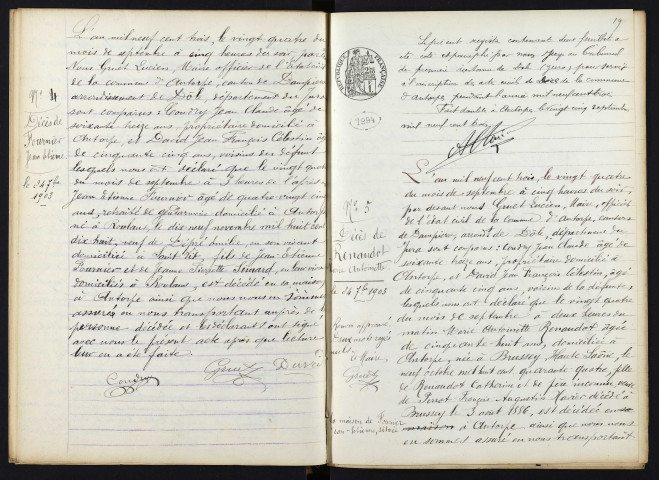 L'an mil neuf cent trois, le vingt quatre du
mois de septembre à cinq heures du soir, par de
Nous Guet Lucien, Maire officier de l'Etat
de la commune d'Autorpe, canton de Dampierre
arrondissement de Dôle, département du Jura
sont comparus: Coudry Jean Claude âgé de
soixante treize ans, propriétaire domicilié à
Autorpe, et David Jean François Célestin âgé
de cinquante cinq ans, voisins du défunt
lesquels nous ont déclaré que le vingt quatre
du mois de septembre à heures de l'après
Jean Etienne Fournier âgé de quatre vingt cinq
ans, retraité de domicilié à Autorpe
né à Roulans, le dix neuf novembre mil huit cent
dix huit, veuf de Émilie, en son vivant
domiciliée à Saint Vit, fils de Jean Etienne
Fournier et de Jeanne Pierrette en leur vivant
domiciliés à Roulans, est décédé en sa maison
à Autorpe ainsi que nous nous en sommes
assurés en nous transportant auprès de la
personne décédée et les déclarants ont signé
avec nous le présent acte après que lecture
leur en a été faite.
Coudry Guet David
N° 4
Décès de
Fournier
Jean Etienne
le 24 7bre
1903
19
Le présent registre contenant deux feuillets a
été coté et paraphé par nous Juge au Tribunal
de première instance de Dole (Jura) pour servir
à l'inscription des actes de Décès de la commune
d'Autorpe, pendant l'année mil neuf cent trois.
Fait double à Autorpe le vingt cinq septembre
mil neuf cent trois.
REPUBLIQUE FRANÇAISE
N° 5
Décès de
Renaudot
Marie Antoinette
le 24 7bre 1903
L'an mil neuf cent trois, le vingt quatre
du mois de septembre à cinq heures du soir,
par devant nous Guet Lucien, Maire, officier
de l'état civil de la Commune d'Autorpe, canton
de Dampierre, arrondt de Dole, département du
Jura, sont comparus: Coudry Jean Claude âgé de
soixante treize ans, propriétaire domicilié à
Autorpe, et David Jean François Célestin, âgé
de cinquante cinq ans, voisins de la défunte,
lesquels nous ont déclaré que le vingt quatre
du mois de septembre à deux heures du
matin Marie Antoinette Renaudot âgée
de cinquante huit ans, domiciliée à
Autorpe, née à Brussey Haute Saône, le
neuf octobre mil huit cent quarante quatre, fille
de Renaudot Catherine et de père inconnu, veuve
de Perrot François Augustin Xavier décédé à
Brussey le 3 août 1886, est décédée en sa
maison à Autorpe ainsi que nous nous
en sommes assuré en nous transportant
mots rayés
nuls
le Maire
Guet
la maison de Fournier
Jean-Etienne, située